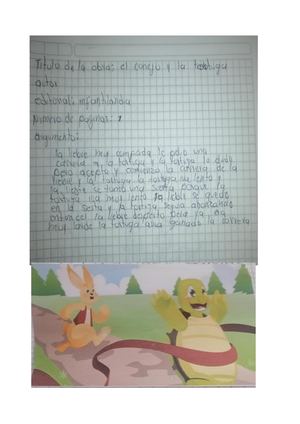 Titulo de la obra: el conejo y la tortuga
autor
editorial: infantilandia
Numero de paginas: 1
argumento:
la liebre muy compada le pidio una
carrera a la tortuga y la tortuga lo dudo
pero acepto y comienza la carrera de la
liebre y la tortuga la tortuga iva lento y
la liebre se tomo una siesta porque la
tortuga iva muy lento la liebre se quedo
en la siesta y la tortuga seguia abansando
entonces la liebre desperto pero ya era
muy tarde la tortuga avia ganado la carrera